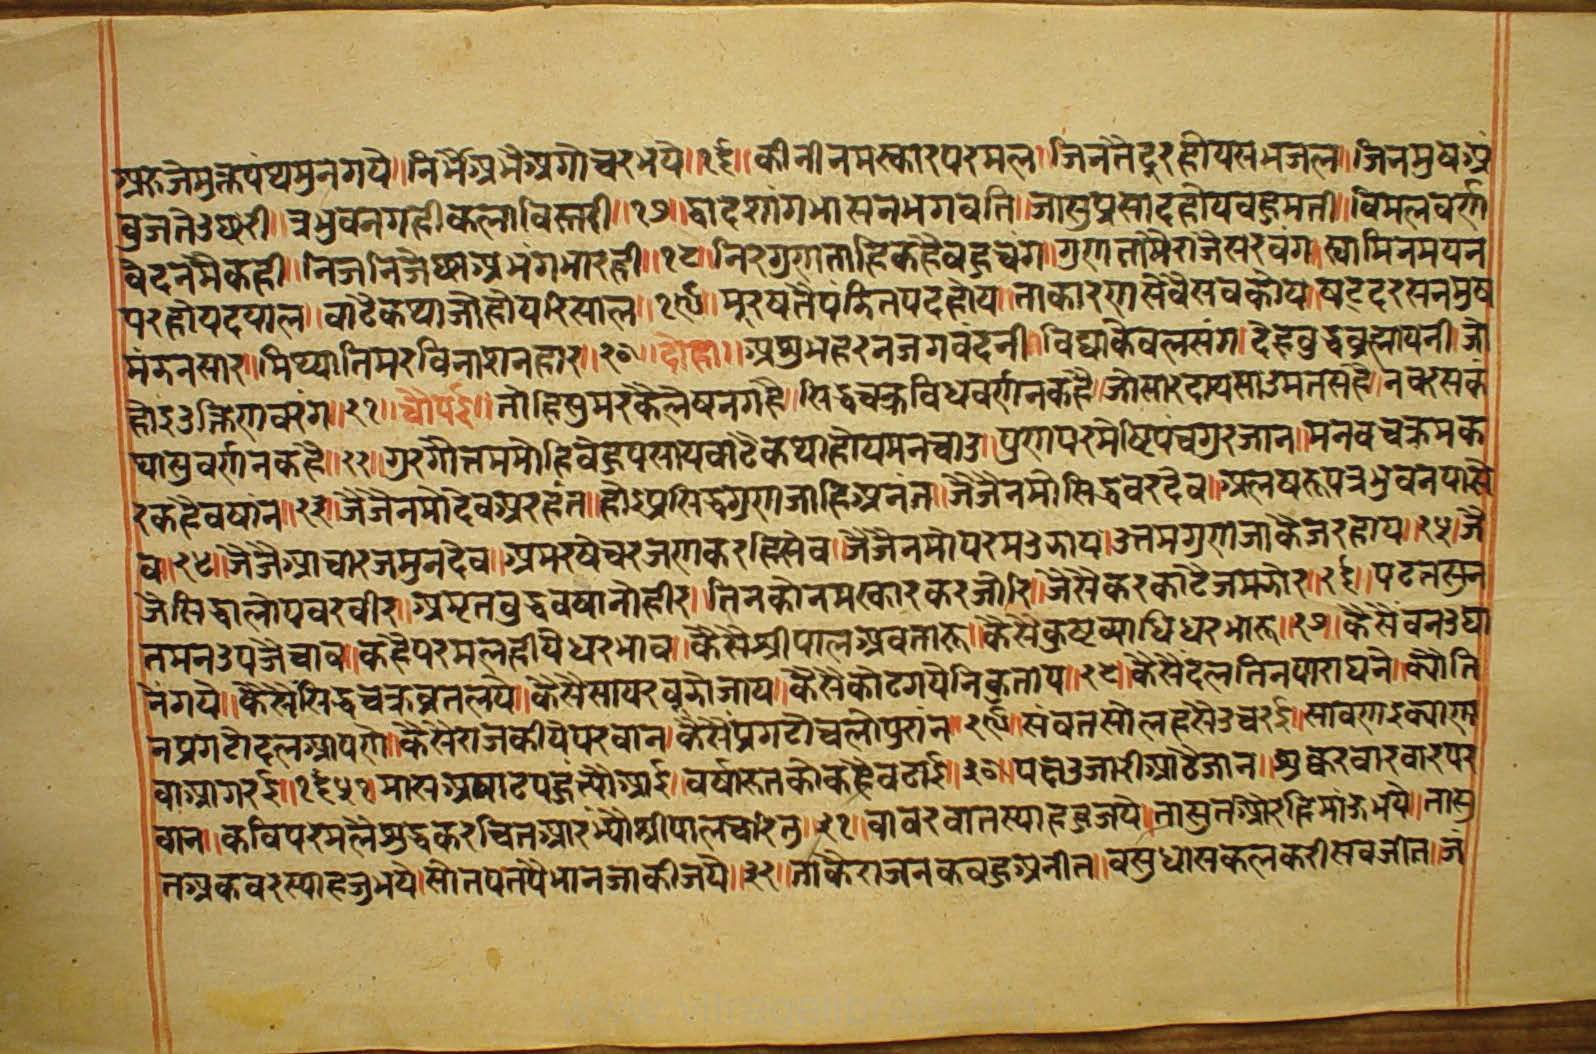 अरुजैमुक्तिपंथमुनगये॥निर्भैअभैअगोचरभये॥१६॥कीनीनमस्कारपरमल॥जिनतैदुरहोयसभजल॥जिनमुषअं
वुजतैउछरी॥त्रभुवनगहीकलाविस्तरी॥१७॥द्वादशांगभासनभगवति॥जासुप्रसादहोयवहुमती॥विमलवर्ण
वैदनमैकही॥निजनिजैछाअभंगभारही॥१८॥निरगुणताहिकहैवहुचंग॥गुणतामैराजैसरवंग॥स्वामिनमयन
परहोयदयाल॥वाढैकथाजौहोयरिसाल॥१९॥मुरषतैपंडितपदहोय॥ताकारणसेवैसवकोय॥षटदरसनमुष
मंडनसार॥मिथ्यातिमरविनाशनहार॥२०॥दोहा॥अशुभहरनजगवंदनी॥विद्याकेवलसंग॥देहेवुद्धवुह्मायनी॥जौ
होइउक्तिणवरंग॥२१॥चौपई॥तोहिसुमरकैलैषनगहै॥सिद्धचक्रविधवर्णनकहै॥जौसारदायसाउमतसहै॥नवरसक
थासुवर्णनकहै॥२२॥गुरगौतममोहिवेहुपसाय॥वाढैकथाहोयमनचाउ॥प्रणपरमेष्टिपंचगुरजान॥मनवचक्रमक
रकहैवषांन॥२३॥जैजैनमोदेवअरहंत॥होइप्रसिद्धगुणजाहिअनंत॥जैजैनमोसिद्धवरदेव॥अलषरूपत्रभुवनपासे
व॥२४॥जैजैआचारजमुनदेव॥अमरषेचरजणकरहिसेव॥जैजैनमोपरमउझाय॥उतमगुणजाकैजरहोय॥२५॥जै
जैसिद्धालोपवरवीर॥अमृतवुद्धवषानोहीर॥तिनकौनमस्कारकरजोरि॥जैसैकरकाटैजमझोर॥२६॥पढतसुन
तमनउपजैचाव॥कहैपरमलहीयैधरभाव॥कैसैश्रीपालअवतारू॥कैसैकुष्टव्याधिधरभारू॥२७॥कैसैवनउद्या
नैगये॥कैसैंसिद्धचक्रव्रतलये॥कैसैसायरवुडोजाय॥कैसैकोटगयेनिकृताय॥२८॥कैसैंदलतिनपाराघने॥क्यौति
नप्रगटोदलआपणो॥कैसैराजकीयेपरवान॥कैसैंप्रगटौचलोपुरांन॥२९॥संवतसोलहसैउचरई॥सावणइक्याण
वाआगरई॥१६५१॥मासअषाढपहूंत्यौआई॥वर्षारुतकोकहैवढाई॥३०॥पक्षउजारीआठैजान॥शुक्करवारवारपर
वान॥कविपरमलैशुद्धकरचित॥आरंभ्यौश्रीपालचरित॥३१॥वावरवातस्याहहुजये॥तासुतआरहिमांऊभये॥तासु
तअकवरस्याहजुभये॥सौतपतपैभानजाकीजये॥३२॥ताकैराजनकवहुअनीत॥वसुधासकलकरीसवजीत॥जं